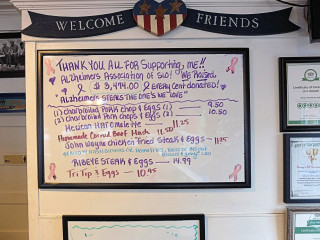 WELCOME FRIENDS
THANK YOU All FOR Supporting me!!
Alzheimers Association of SLO! We Raised
$3,474.00 & EVERY Cent donated!
"Alzheimers STEALS THE ONE'S WE LOVE"
(1) Charbroiled Pork chop & Eggs (2) 9.50
(2) Charbroiled Pork chops & eggs (2) 10.50
Mexican Hot Cake Pie 11.25
Homemade Corned Beef Hash 11.50
John Wayne Chicken Fried Steak & Eggs 11.75
RIBEYE STEAK & Eggs 14.99
Tri Tip & Eggs 10.95